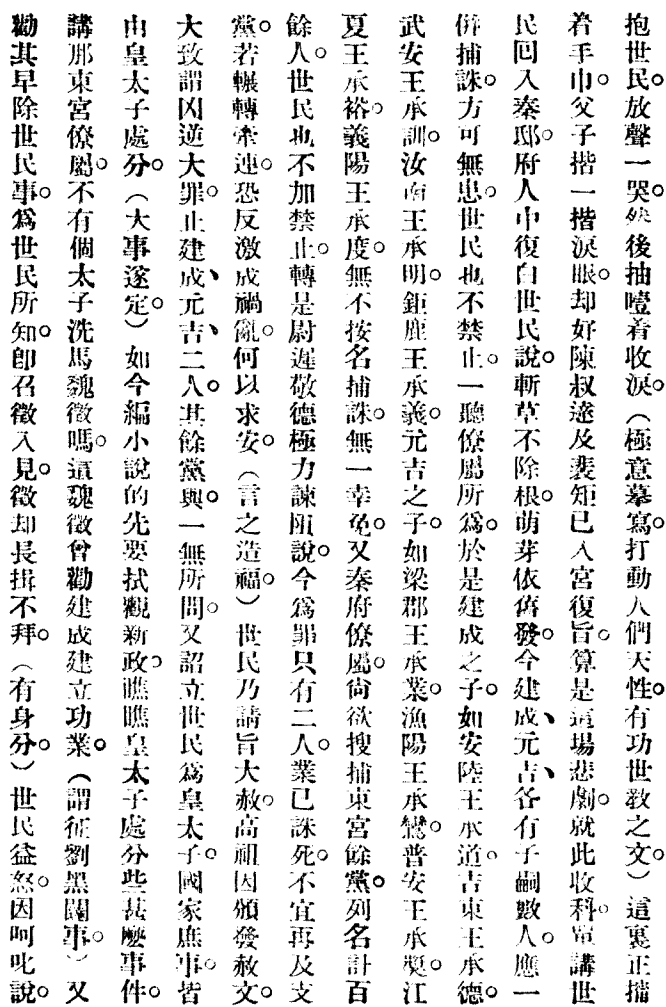 抱世民。放聲一哭。然後抽噎着收淚（極意摹寫。打動人們天性。有功世敎之文）這裏正擋
着手巾。父子揩一揩淚眼。却好陳叔達及裴矩已入宮復旨。算是這場悲劇。就此收科。單講世
民回入秦邸。府人中復白世民說。斬草不除根。萌芽依舊發。今建成、元吉、各有子嗣數人。應一
併捕誅。方可無患。世民也不禁止。一聽僚屬所爲。於是建成之子。如安陸王承道。吉東王承德。
武安王承訓。汝南王承明。鉅鹿王承義。元吉之子。如梁郡王承業。漁陽王承鸞。普安王承奬。江
夏王承裕。義陽王承度。無不按名捕誅。無一幸免。又秦府僚屬。尙欲搜捕東宮餘黨。列名計百
餘人。世民也不加禁止。轉是尉遲敬德極力諫阻說。今爲罪只有二人。業已誅死。不宜再及支
黨。若輾轉牽連。恐反激成禍亂。何以求安（言之造福。）世民乃請旨大赦。高祖因頒發赦文。
大致謂凶逆大罪。止建成、元吉、二人。其餘黨與。一無所問。又詔立世民爲皇太子。國家庶事。皆
由皇太子處分。（大事遂定。）如今編小說的先要拭觀新政。瞧瞧皇太子處分些甚麼事件。
講那東宮僚屬。不有個太子洗馬魏徵嗎。這魏徵曾勸建成建立功業。（謂征劉黑闥事。）又
勸其早除世民。事爲世民所知。卽召徵入見。徵却長揖不拜。（有身分）世民益怒。因呵叱說。